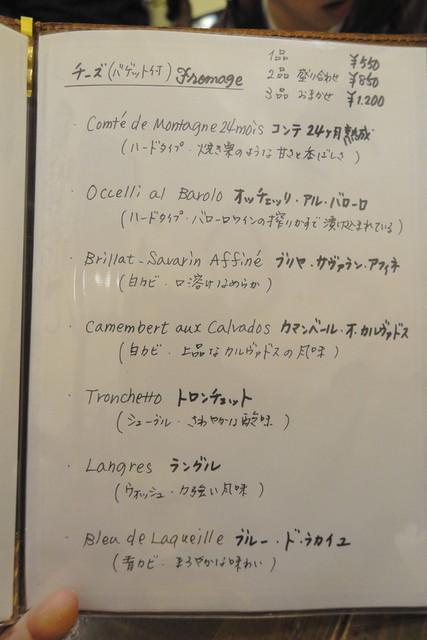 チーズ(バゲット付) Fromage
1品 ¥550
2品 盛り合わせ ¥850
3品 おまかせ ¥1.200
・Comté de Montagne 24mois コンテ 24ヶ月熟成
(ハードタイプ・焼き栗のような甘さと香ばしさ)
・Occelli al Barolo オッチェッリ・アル・バローロ
(ハードタイプ・バローロワインの搾りかすで漬け込まれている)
・Brillat-Savarin Affiné ブリヤ・サヴァラン・アフィネ
(白カビ・口溶けなめらか)
・Camembert aux Calvados カマンベール・オ・カルヴァドス
(白カビ・上品なカルヴァドスの風味)
・Tronchetto トロンチェット
(シェーブル・さわやかな酸味)
・Langres ラングル
(ウォッシュ・力強い風味)
・Bleu de Laqueille ブルー・ド・ラカイユ
(青カビ・まろやかな味わい)